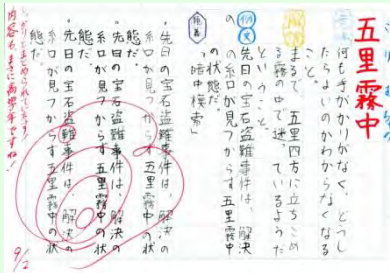 ごりむちゅう
五里霧中
意味
何も手がかりがなく、どうし
たらよいのかわからなくなる
こと。
解説
まるで、五里四方に立ちこめ
る霧の中で迷っているようだ
ということ。
例文
先日の宝石盗難事件は、解決
の糸口が見つからず五里霧中
の状態だ。
類義
「暗中模索」
・先日の宝石盗難事件は、解決の
糸口が見つからず五里霧中の状
態だ。
・先日の宝石盗難事件は、解決の
糸口が見つからず五里霧中の状
態だ。
・先日の宝石盗難事件は、解決の
糸口が見つからず五里霧中の状
態だ。
内容も、まさに高学年ですね！
9/2